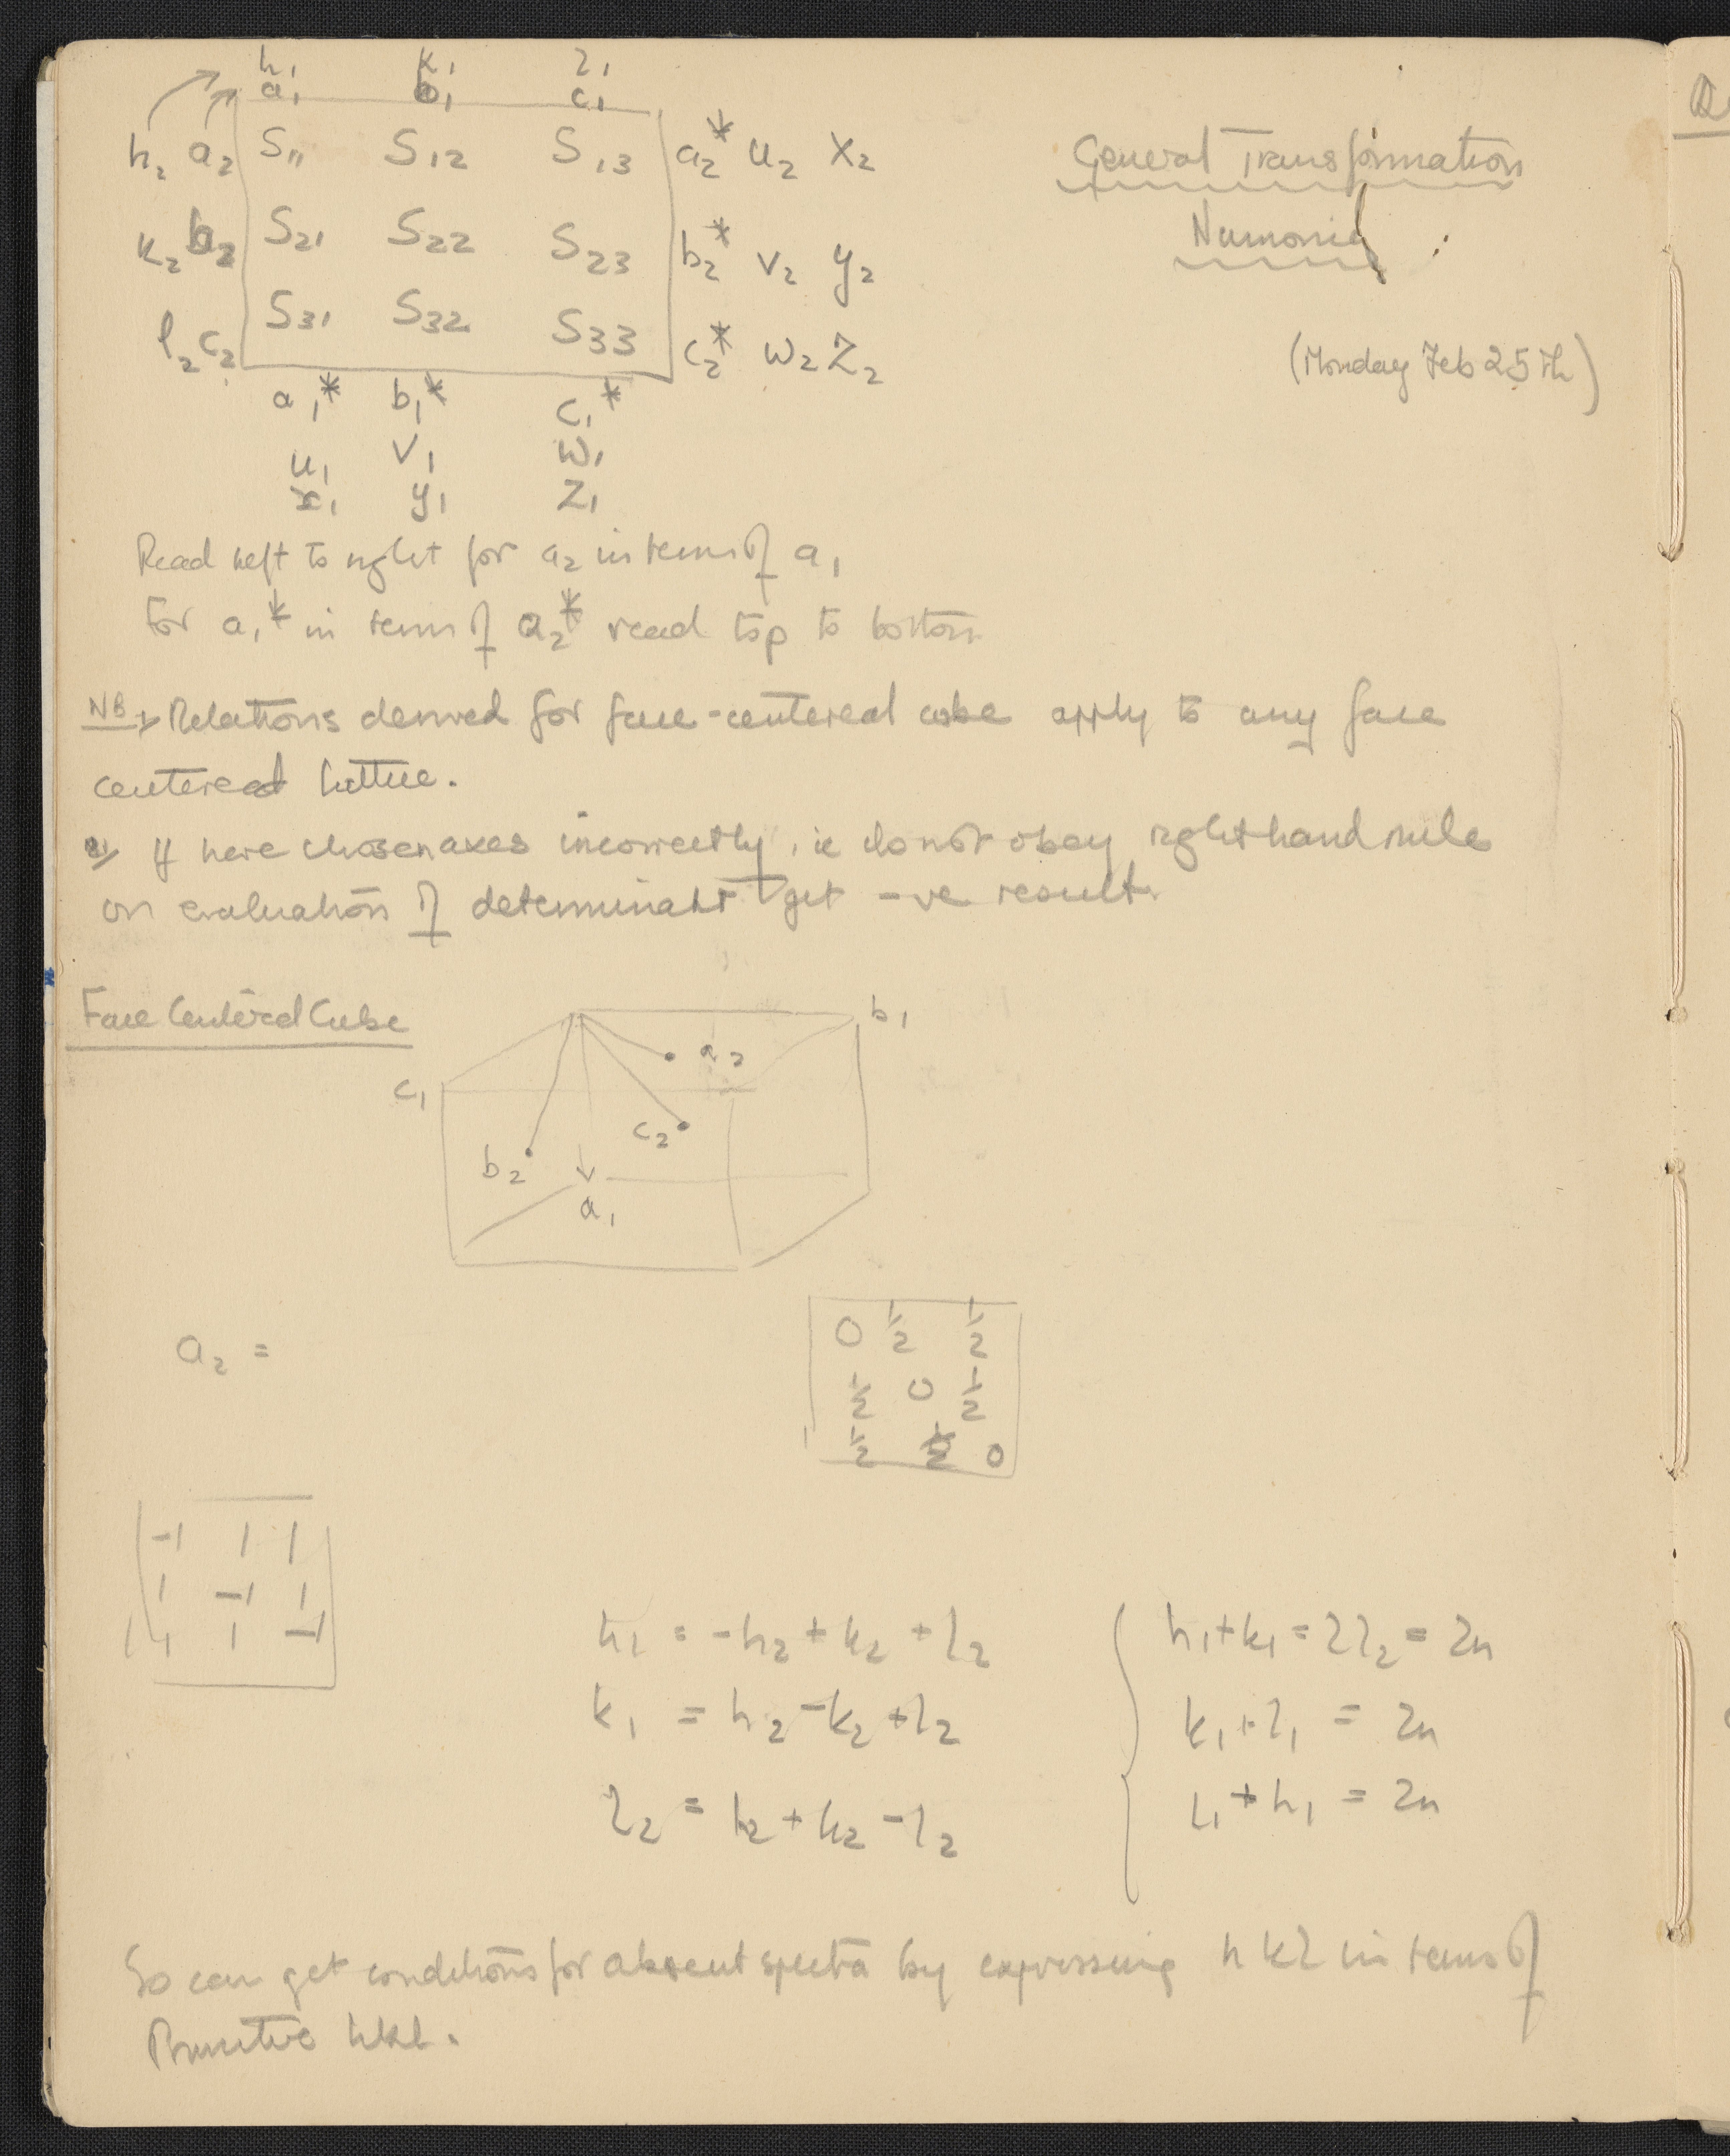 h₁ k₁ l₁
a₁ b₁ c₁
h₂ a₂ S₁₁ S₁₂ S₁₃ a₂* u₂ x₂
k₂ b₂ S₂₁ S₂₂ S₂₃ b₂* v₂ y₂
l₂ c₂ S₃₁ S₃₂ S₃₃ c₂* w₂ z₂
a₁* b₁* c₁*
u₁ v₁ w₁
x₁ y₁ z₁
General Transformation
(Monday Feb 25th)
Read left to right for a₂ in terms of a₁
For a₁* in terms of a₂* read top to bottom
NB 1/ Relations derived for face-centered cube apply to any face
centered lattice.
2/ If have chosen axes incorrectly, ie do not obey right hand rule
on evaluation of determinant get -ve result.
Face Centered Cube
b₁
a₂
c₁
c₂
b₂
a₁
a₂ =
0 ½ ½
½ 0 ½
½ ½ 0
-1 1 1
1 -1 1
1 1 -1
h₁ = -h₂ + k₂ + l₂
k₁ = h₂ - k₂ + l₂
l₂ = h₂ + k₂ - l₂
h₁ + k₁ = 2l₂ = 2n
k₁ + l₁ = 2n
l₁ + h₁ = 2n
So can get conditions for absent spectra by expressing h k l in terms of
Primitive hkl.